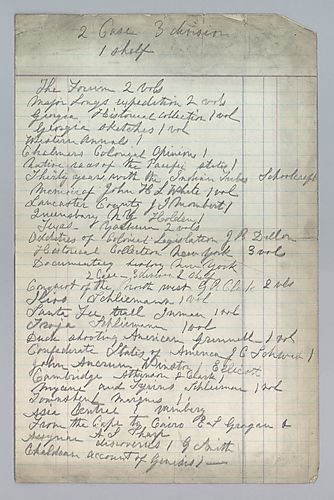 2 Case 3 division
1 shelf
The Forum 2 vols
Major Longs expedition 2 vols
Georgia Historical Collection 1 vol
Georgia Sketches 1 vol
Western Annals 1
Chalmers Colonial Opinions 1
Native races of the Pacific states 1
Thirty years with the Indian Tribes Schoolcraft
Memoir of John H White 1 vol
Lancaster County J I Mombert 1
Queensbury N.Y. Holden 1
Texas Yoakum 2 vols
Oddities of Colonial Legislation J B Dillon
Historical Collection New York 3 vols
Documentary history New York
2 Case Division 2 shelf
Conquest of the north west 2 vols
Ilios Schliemann 1 vol
Santa Fee trail Inman 1 vol
Troja Schliemann 1 vol
Duck shooting American Grinnell 1 vol
Confederate States of America J C 1
John Ancrum Winslow Ellicott
Cambridge 1
Mycenæ and Tiryns Schlieman 1 vol
Tomashek 1
Asia Centree 1
From the Cape to Cairo E S Grogan &
Assyrian A. H. Sharp
discoveries 1 G Smith
Chaldean account of Genesis 1